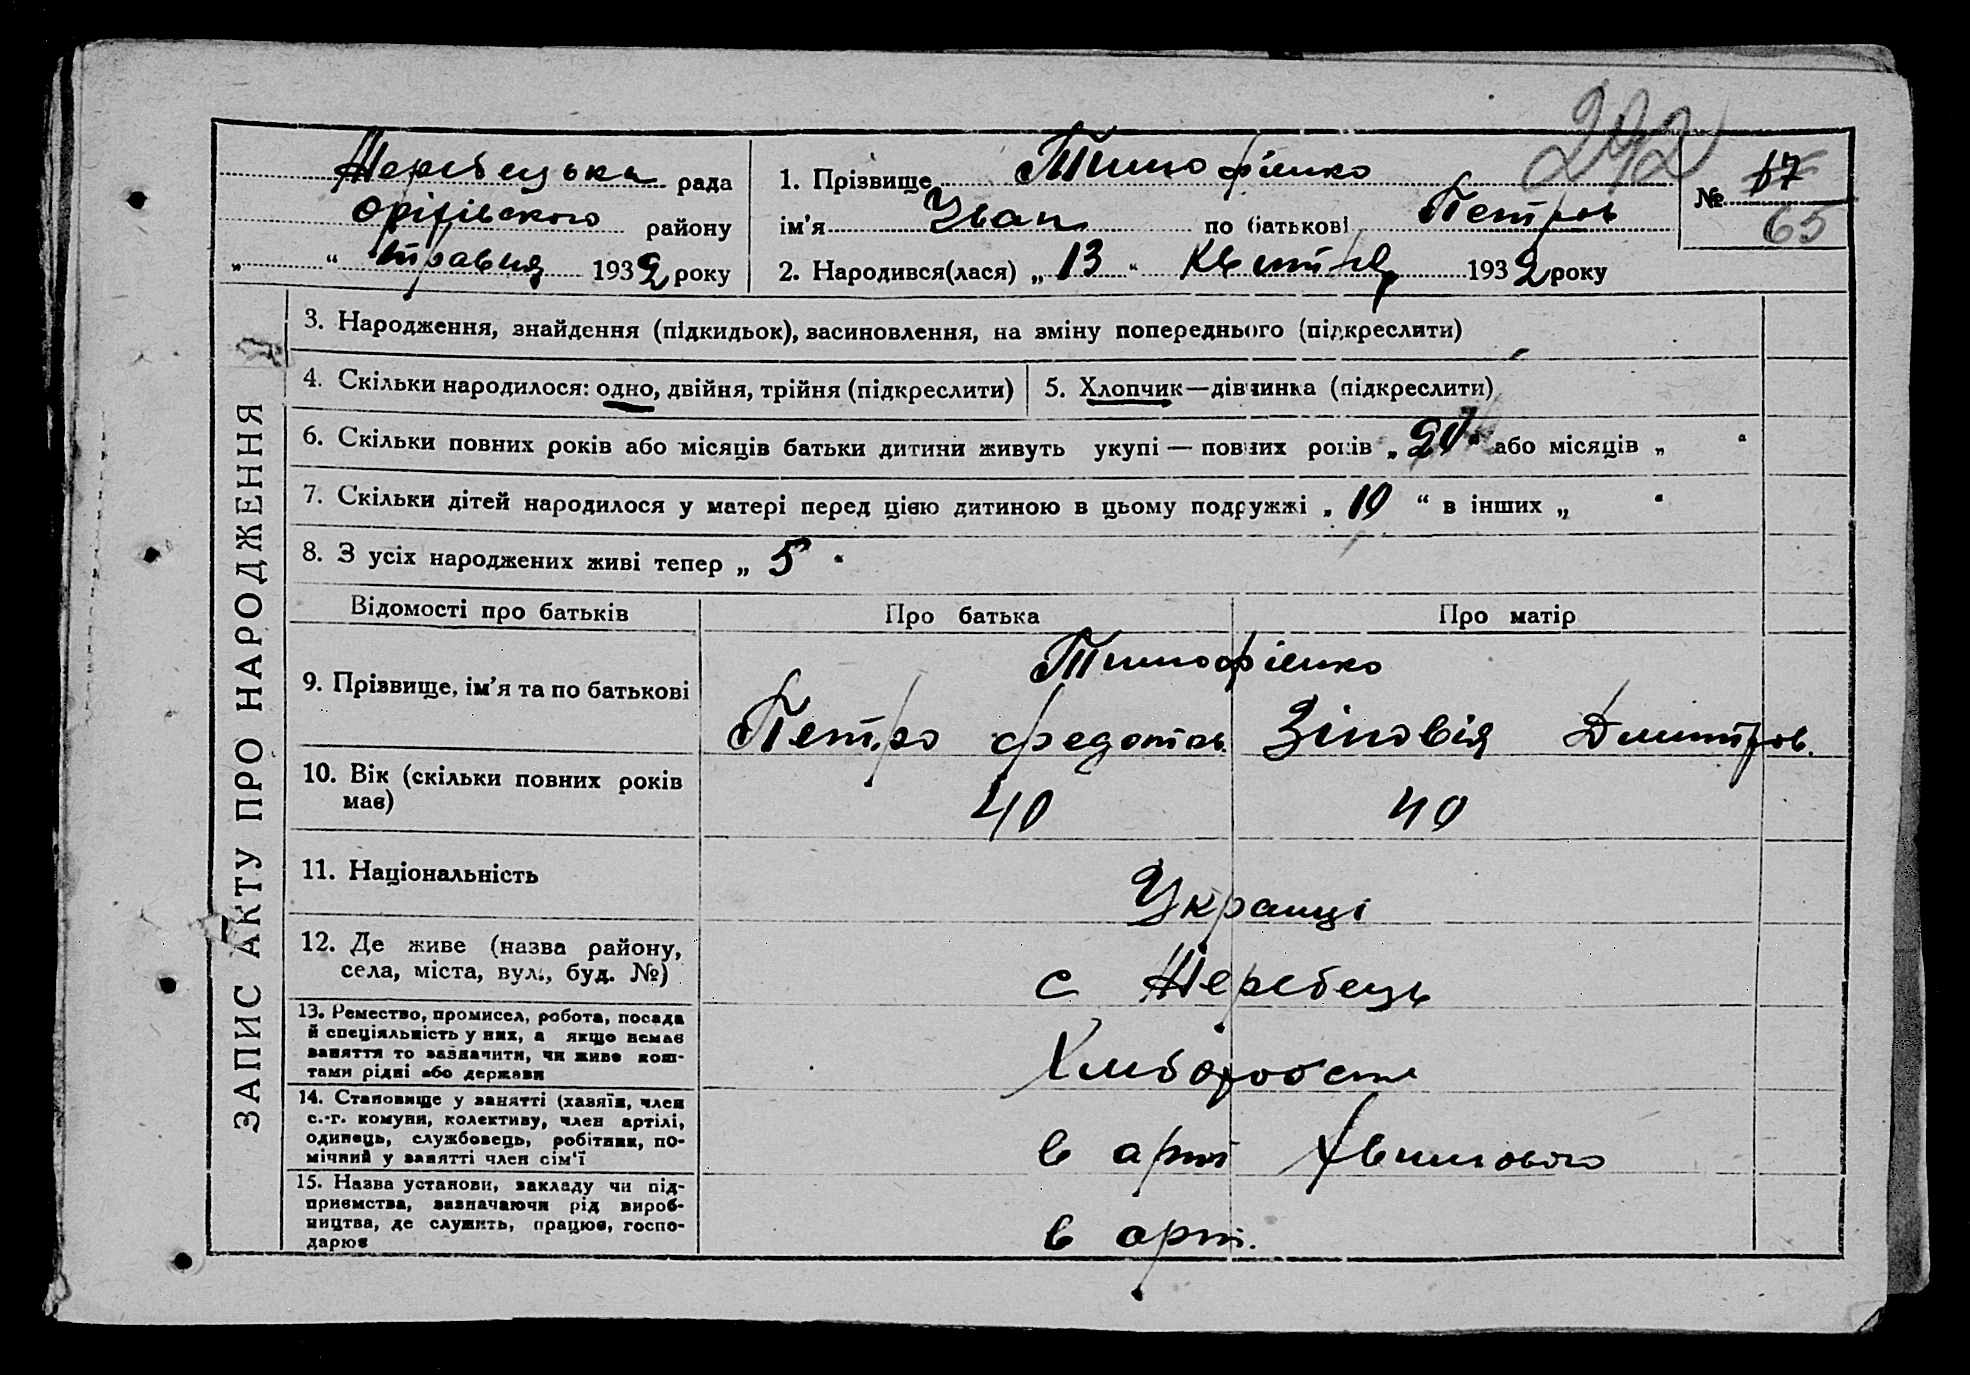 292
Жеребецька рада
Оріхівського району
„ “ травня 1932 року
1. Прізвище Тимофієнко
ім’я Іван по батькові Петров
2. Народився(лася) „ 13 “ квітня 1932 року
№ 17
65
ЗАПИС АКТУ ПРО НАРОДЖЕННЯ
3. Народження, знайдення (підкидьок), засиновлення, на зміну попереднього (підкреслити)
4. Скільки народилося: одно, двійня, трійня (підкреслити)
5. Хлопчик—дівчинка (підкреслити)
6. Скільки повних років або місяців батьки дитини живуть укупі — повних років „ 20 “ або місяців „ “
7. Скільки дітей народилося у матері перед цією дитиною в цьому подружжі „ 10 “ в інших „ “
8. З усіх народжених живі тепер „ 5 “
Відомості про батьків Про батька Про матір
9. Прізвище, ім’я та по батькові
Тимофієнко
Петро Федотов. Зіновія Дмитров.
10. Вік (скільки повних років
має)
40 40
11. Національність
Українці
12. Де живе (назва району,
села, міста, вул., буд. №)
с Жеребець
13. Ремество, промисел, робота, посада
й спеціяльність у них, а якщо немає
заняття то зазначити, чи живе кош-
тами рідні або держави
Хліборобств
14. Становище у занятті (хазяїн, член
с.-г. комуни, колективу, член артілі,
одинець, службовець, робітник, по-
мічний у занятті член сім’ї
в арт
15. Назва установи, закладу чи під-
приємства, зазначаючи рід вироб-
ництва, де служить, працює, госпо-
дарює
в арт.